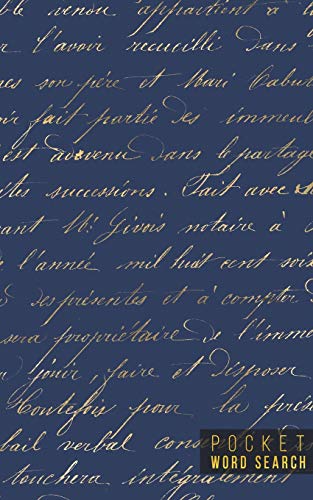 le vendu appartient à
l'avoir recueilli dans
son père et Mari Cabut
fait partie des immeubl
est advenu dans le partage
successions. Fait avec
Mr. Givois notaire à
de l'année mil huit cent soix
des présentes et à compter
sera propriétaire de l'imme
jouir, faire et disposer
Toutefois pour la prés
bail verbal conse
touchera intégralement
POCKET
WORD SEARCH